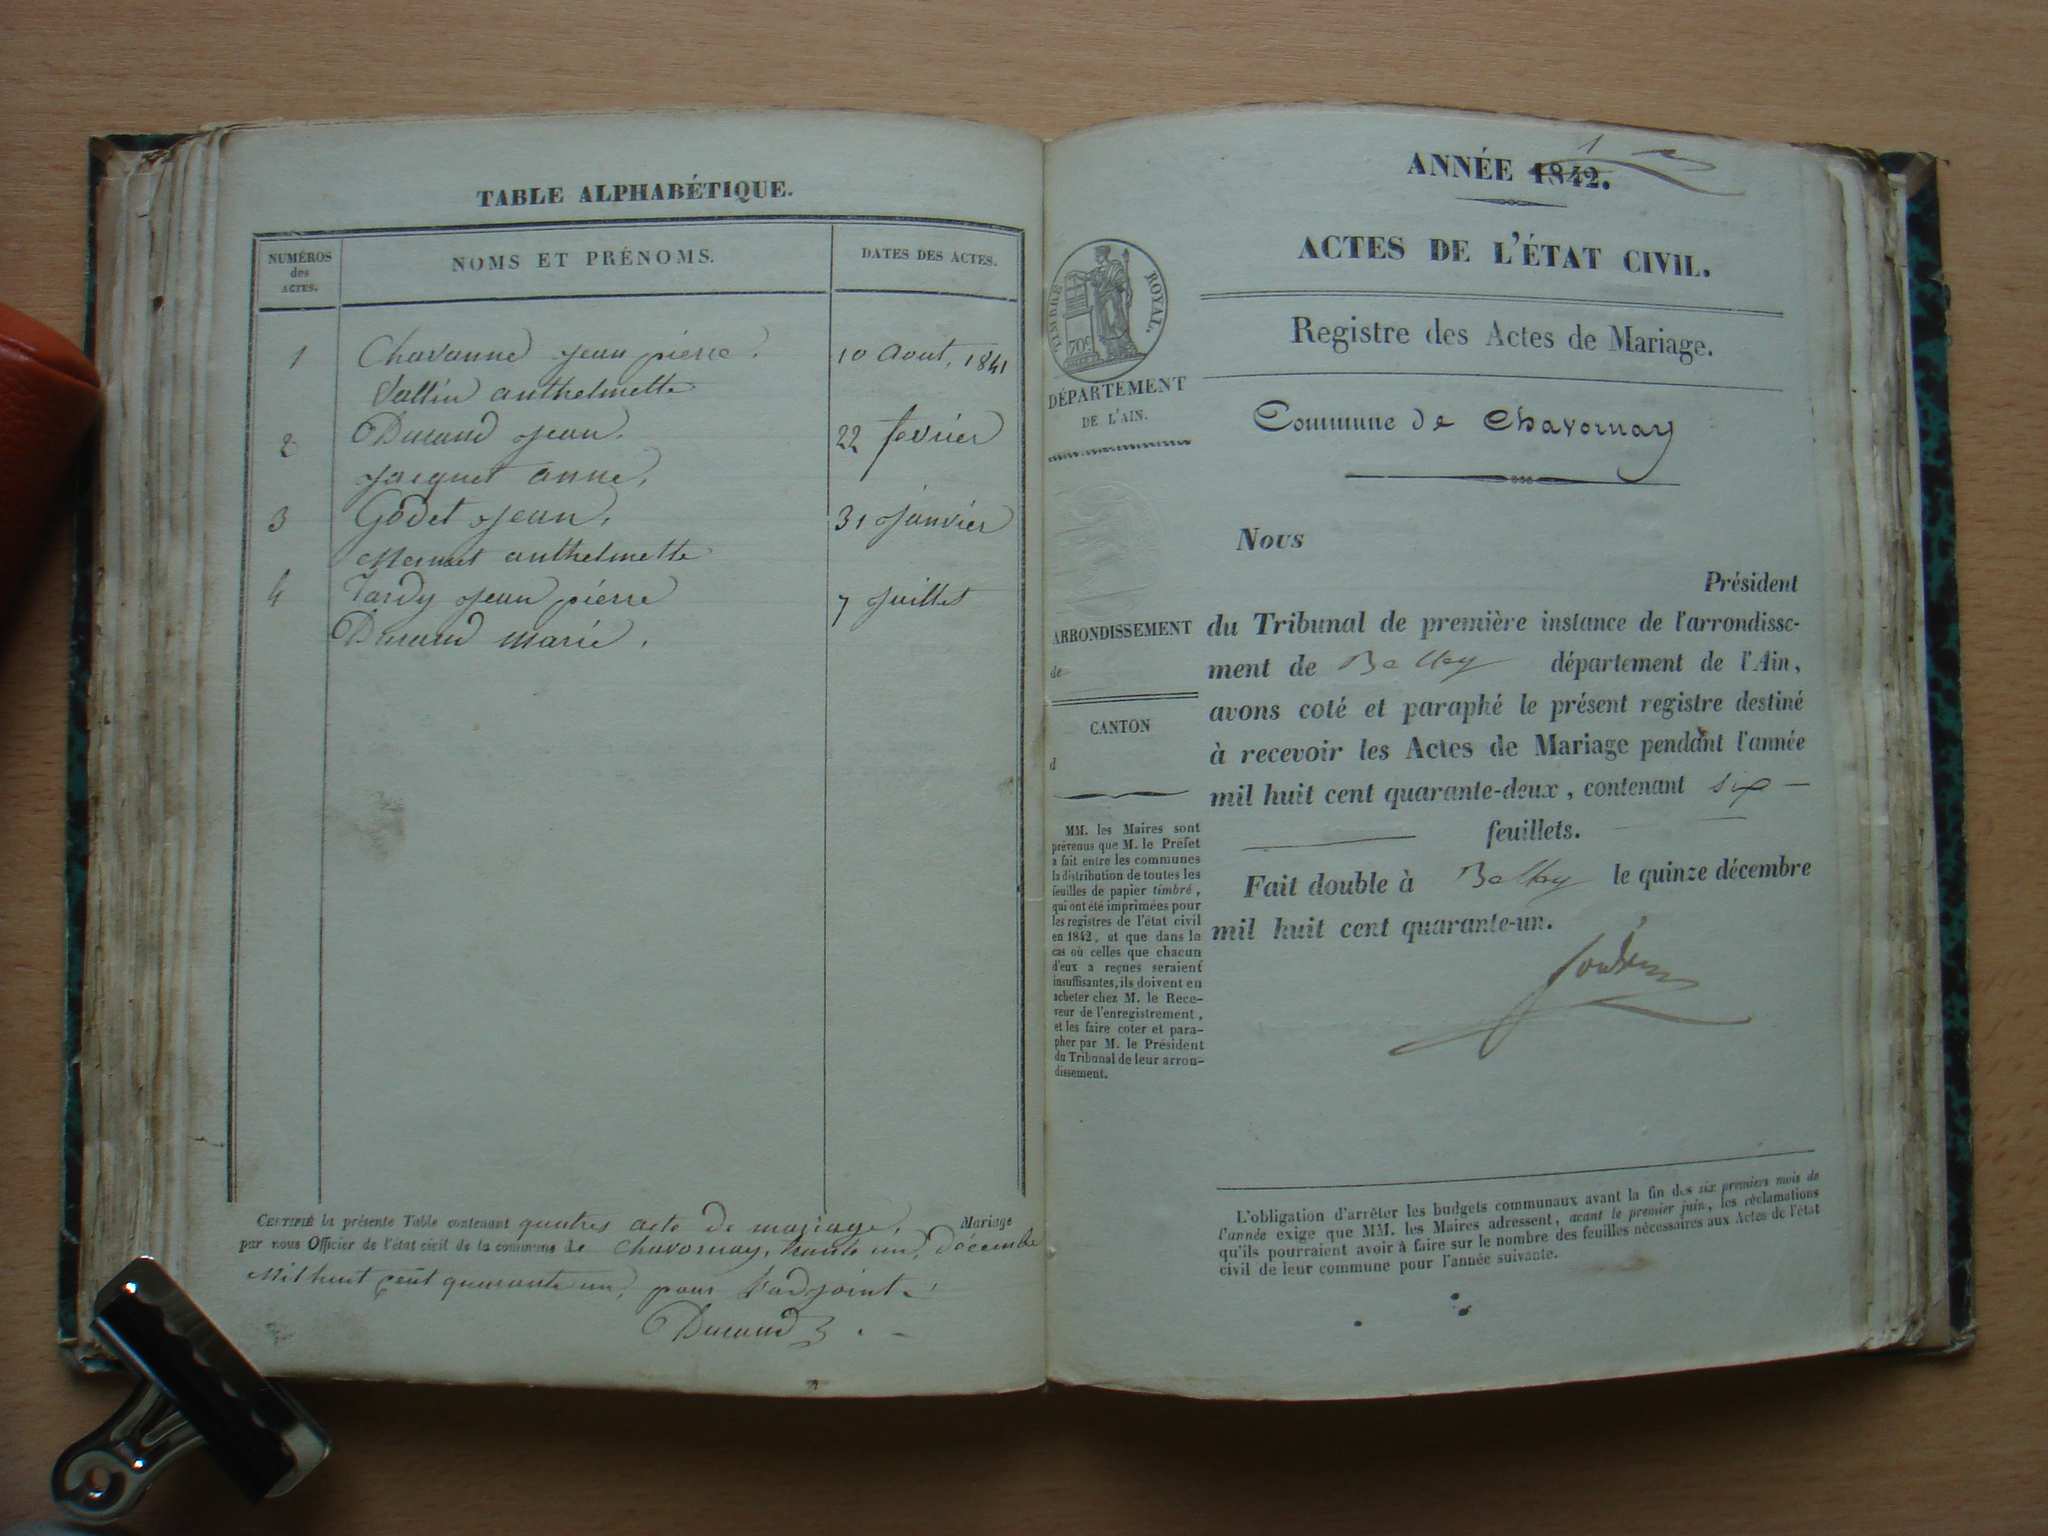 TABLE ALPHABÉTIQUE.
NUMÉROS
des
ACTES.
NOMS ET PRÉNOMS.
DATES DES ACTES.
1 Chavanne Jean pierre. 10 Aout, 1841
Vallin anthelmette
2 Durand Jean. 22 fevrier
Jacquet anne,
3 Godet Jean, 31 Janvier
anthelmette
4 Tardy Jean pierre 7 Juillet
Durand marie,
CERTIFIÉ la présente Table contenant quatres acte de mariage, Mariage
par nous Officier de l'état civil de la commune de Chavornay, trente un, décembre
Mil huit cent quarante un, pour l'adjoint
Durand
ANNÉE 1842.
1
ACTES DE L'ÉTAT CIVIL.
Registre des Actes de Mariage.
Commune de Chavornay
TIMBRE ROYAL.
70c
DÉPARTEMENT
DE L'AIN.
ARRONDISSEMENT
de
CANTON
d
MM. les Maires sont
prévenus que M. le Préfet
a fait entre les communes
la distribution de toutes les
feuilles de papier timbré,
qui ont été imprimées pour
les registres de l'état civil
en 1842, et que dans la
cas où celles que chacun
d'eux a reçues seraient
insuffisantes, ils doivent en
acheter chez M. le Rece-
veur de l'enregistrement,
et les faire coter et para-
pher par M. le Président
du Tribunal de leur arron-
dissement.
Nous
Président
du Tribunal de première instance de l'arrondisse-
ment de Belley département de l'Ain,
avons coté et paraphé le présent registre destiné
à recevoir les Actes de Mariage pendant l'année
mil huit cent quarante-deux, contenant six
feuillets.
Fait double à Belley le quinze décembre
mil huit cent quarante-un.
L'obligation d'arrêter les budgets communaux avant la fin des six premiers mois de
l'année exige que MM. les Maires adressent, avant le premier juin, les réclamations
qu'ils pourraient avoir à faire sur le nombre des feuilles nécessaires aux Actes de l'état
civil de leur commune pour l'année suivante.